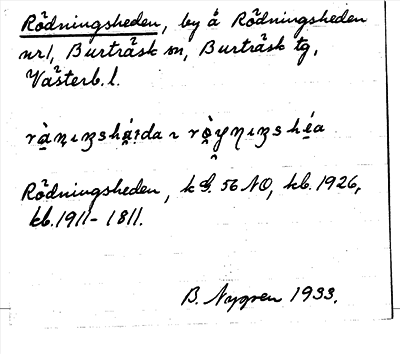 Rödningsheden, by å Rödningsheden
nr1, Burträsk sn, Burträsk tg,
Västerb. l.
Rödningsheden, k G. 56 NO, kb. 1926,
kb. 1911-1811.
B. Nygren 1933.